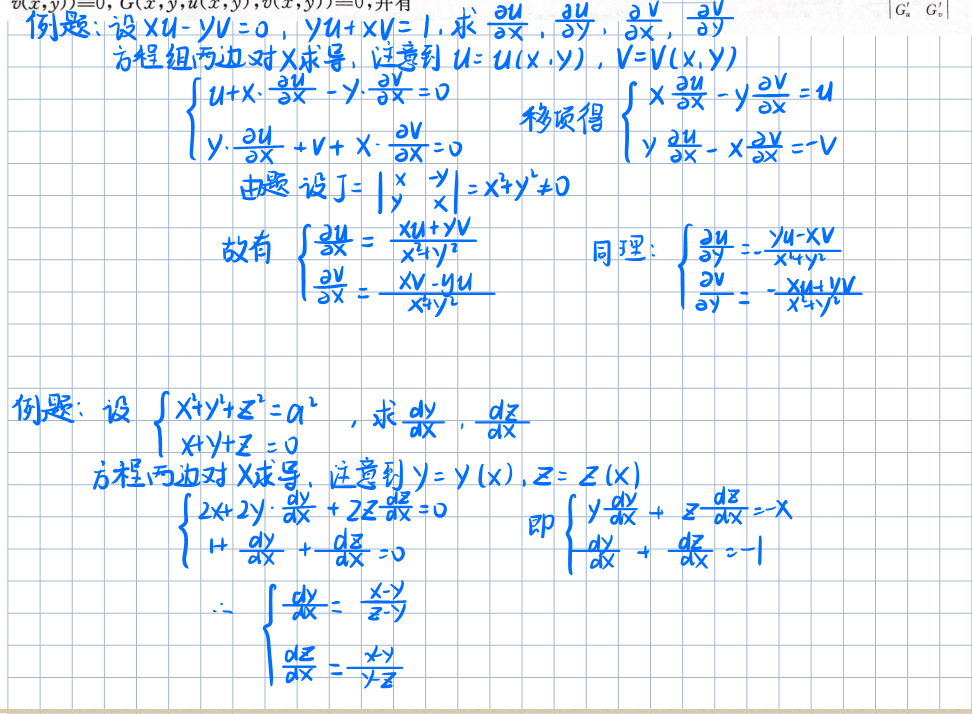 v(x,y))≡0, G(x,y,u(x,y),v(x,y))≡0,并有 | G'u G'v |
例题:设 xu-yv=0, yu+xv=1, 求 ∂u/∂x, ∂u/∂y, ∂v/∂x, ∂v/∂y
方程组两边对x求导,注意到 u=u(x,y), v=v(x,y)
{ u+x·∂u/∂x - y·∂v/∂x = 0
y·∂u/∂x + v + x·∂v/∂x = 0
移项得 { x ∂u/∂x - y ∂v/∂x = u
y ∂u/∂x - x ∂v/∂x = -v
由题设 J = | x -y
y x | = x²+y² ≠ 0
故有 { ∂u/∂x = (xu+yv)/(x²+y²)
∂v/∂x = (xv-yu)/(x²+y²)
同理: { ∂u/∂y = -(yu-xv)/(x²+y²)
∂v/∂y = -(xu+yv)/(x²+y²)
例题: 设 { x²+y²+z²=a²
x+y+z=0 , 求 dy/dx, dz/dx
方程两边对x求导,注意到 y=y(x), z=z(x)
{ 2x+2y·dy/dx + 2z dz/dx = 0
1+ dy/dx + dz/dx = 0
即 { y dy/dx + z dz/dx = -x
dy/dx + dz/dx = -1
∴ { dy/dx = (x-y)/(z-y)
dz/dx = (x-y)/(y-z)